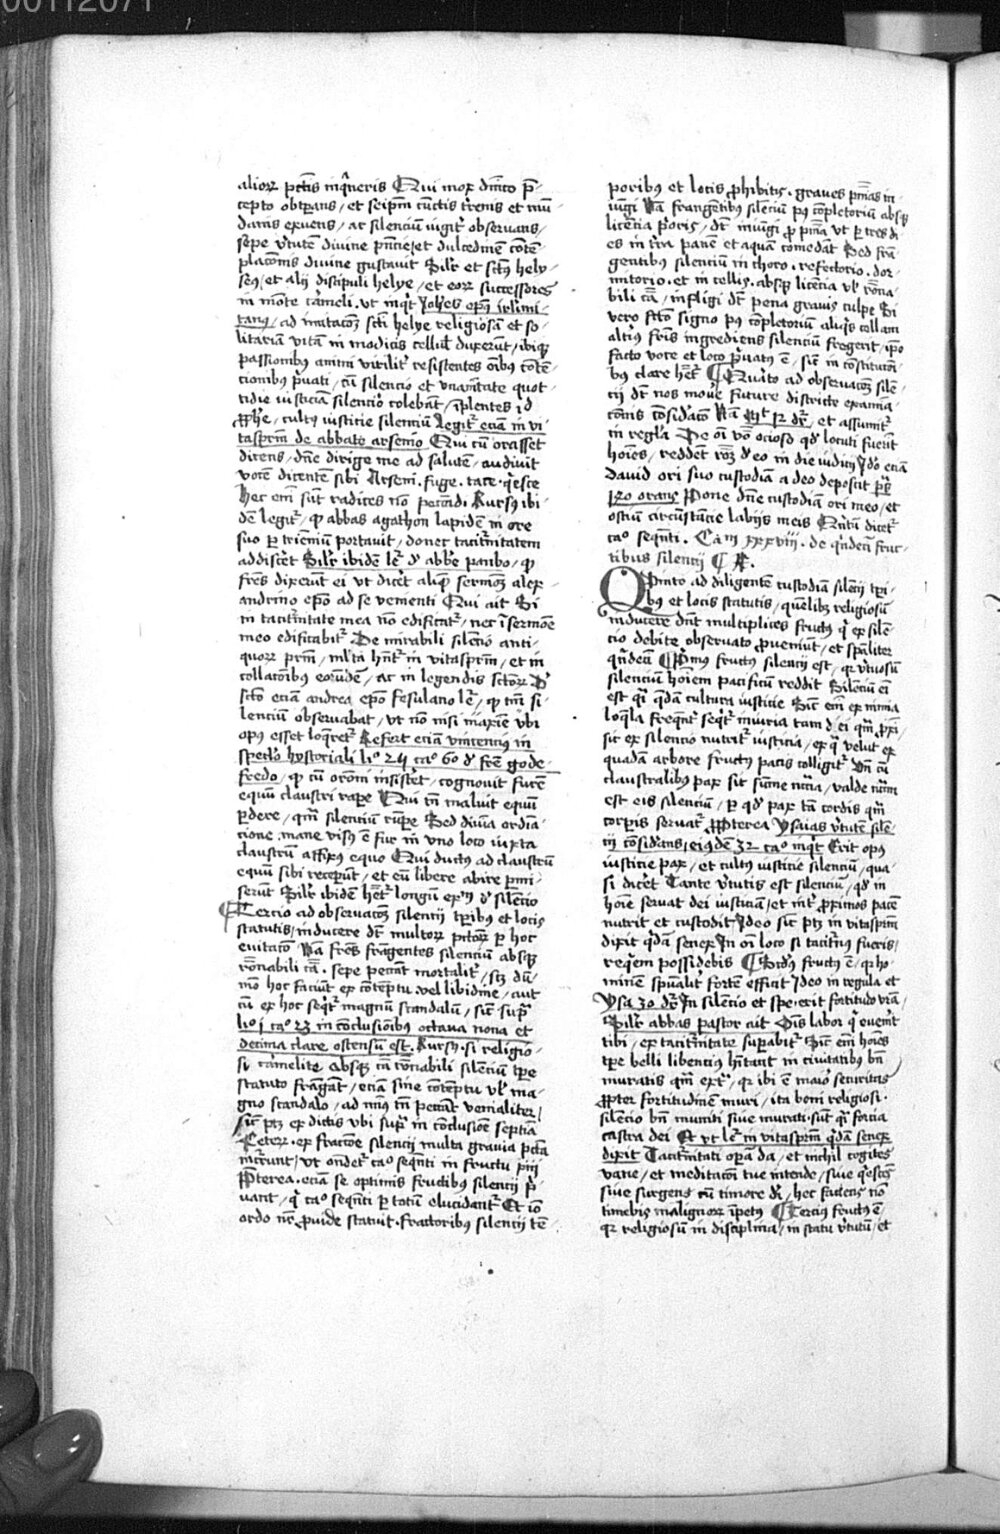 00112071
alioꝝ pctis inq̄neris Qui mox dn̄ico p̄-
cepto obtꝑans / et seipm̄ cūctis tr̄enis et mū-
danis exuens / ac silenciū iugit̄ observans /
sepe v̄tutem divine pn̄cie / et dulcedinem cōtē-
placōnis divine gustavit Silr̄ et sctꝰ hely-
seꝰ / et alij discipuli helye / et eoꝝ successores
in mōte carmeli . vt inq̄t Joh̄es ep̄us ir̄limi-
tanꝰ / ad imitacōꝫ scti helye religiosā et so-
litariā vitā in modicis cellul̄ duxerūt / ibiqꝫ
passionibꝰ animi virilit̄ resistentes oībus cōtē-
cionibꝰ pͥuati / cū silencio et vnanītate quot-
tidie iusticiā silencio colebāt / īplentes id
ꝓph̄e / cultꝰ iusticie silenciū Legit̄ eciā in vi-
tasprm̄ de abbate arsenio Qui cū orasset
dicens / dn̄e dirige me ad salutē / audivit
vocē dicentem sibi Arseni . fuge . tace . q̄esce
Hec em̄ sūt radices nō peccādi Rursꝰ ibi-
dē legit̄ / ꝙ abbas agathon lapidem in ore
suo ꝑ trienniū portavit / donec tacit̄nitatem
addisceret Silr̄ ibidem le͞r d͛ abb̄e pambo / ꝙ
fr̄es dixerūt ei vt dicēt aliqꝫ sermonꝫ alex-
andrino ep̄o ad se venienti Qui ait Si
in tacit̄nitate mea nō edificat̄ / nec ī sermone
meo edificabit̄ De mirabili silencio anti-
quoꝝ prm̄ / ml̄ta hn̄t̄ in vitasprm̄ / et in
collacōibus eorūdē / ac in legendis sctoꝝ De
scto eciā andrea ep̄o fesulano le͞r / ꝙ tm̄ si-
lencium observabat / vt nō nisi maxīe vbi
opꝰ esset loq̄ret̄ Refert eciā vincencius in
specl̄o hystoriali li° 24 ca° 60 d͛ fr̄e gode-
fredo / ꝙ cū oroni insisteret / cognovit furē
equū claustri rape Qui tn̄ maluit equū
ꝑdere / qm̄ silenciū rūpe Sed divīa ordīa-
cione . mane visꝰ ē fur in vno loco iuxta
claustrū affixꝰ equo Qui ductꝰ ad claustrū
equū sibi recepūt / et eū libere abire ꝑmi-
serūt Silr̄ ibidem hēt̄ longū exm̄ d͛ silēcio
¶ Tercio ad observacōꝫ silencij tꝑibus et locis
statutis / inducere dꝫ multoꝝ pctoꝝ ꝑ hoc
evitacō Nā fr̄es frāgentes silenciū absqꝫ
rōnabili cā . sepe peccāt mortalit̄ / scꝫ dū-
mō hoc faciūt ex cōtēptu . vel libidine / aut
cū ex hoc seq̄t̄ magnū scandalū / sic̄ supͣ
li° j ca° 23 in cōclusionibꝰ octava nona et
decima clare ostensū est . Rursꝰ . si religio-
si carmelite absqꝫ cā rōnabili silenciū tꝑe
statuto frāgāt / eciā sine cōtēptu vl̄ ma-
gno scandalo / ad minꝰ tn̄ peccāt venialiter /
sic̄ ptꝫ ex dictis vbi supͣ in cōclusione septīa
Ceteꝝ . ex fracōne silencij multa gravia pctā
incurrunt / vt ondet̄ ca° seq̄nti in fructu xiij
Preterea . eciā se optimis fructibꝰ silencij pͥ-
vant / q̄ ca° seq̄nti ꝑ totū elucidant̄ Et iō
ordo nr̄ ꝓuide statuit . fractoribꝰ silencij tē-
poribꝰ et locis ꝓhibitis . graves pn̄ias in-
iūgi Nā frangentibꝰ silēciū pꝰ cōpletoriū absqꝫ
licēcia pͥoris / dꝫ iniūgi ꝓ pn̄ia vt ꝑ tres di-
es in t̄ra panē et aquā comedāt Sed frā-
gentibꝰ silenciū in choro . refectorio . dor-
mitorio . et in cellis . absqꝫ licēcia vl̄ rōna-
bili cā / infligi dꝫ pena gravis culpe Si
vero scto signo pꝰ cōpletoriū aliq̄s cellam
altīꝰ fr̄is ingrediens silenciū fregerit / ipo
facto voce et loco pͥuatꝰ ē / sic̄ in cōstitucōi-
bꝰ clare hēt̄ ¶ Quarto ad observacōꝫ silē-
cij dꝫ nos movē future districte examīa-
cōnis cōsidͣacō Nā Mt̄ 12 dr̄ / et assumit̄
in regl̄a De oī vb̄o ocioso qd̄ locuti fuerīt
hoīes / reddēt rōꝫ d͛ eo in die iudicij Ido eciā
david ori suo custodiā a deo deposcit ps̄
140 orans Pone dn̄e custodiā ori meo / et
ostiū circūstācie labijs meis Qn̄tū dicet̄
ca° seq̄nti . Cam xxxviij . de q̄ndecī fruc-
tibus silencij ¶ R̄ .
Quinto ad diligentē custodiā silēcij tꝑi-
bꝰ et locis statutis / quēlibꝫ religiosū
inducere dn̄t multiplices fructꝰ q̄ ex silē-
cio debite observato ꝓveniūt / et spāliter
q̄ndecī ¶ Primꝰ fructꝰ silencij est / qꝛ v̄tuosū
silenciū hoīem pacificū reddit Silenciū em̄
est q̄i q̄dā cultura iusticie Sic̄ em̄ ex nimia
loq̄la freq̄nt̄ seq̄t̄ iniuria tam d͛i qm̄ ꝓxi /
sic ex silencio nutrit̄ iusticia / ex q̄ velut ex
quadā arbore fructꝰ pacis colligit̄ Vn̄ cū
claustralibꝰ pax sit sūme nc̄ia / valde nc̄im
est eis silenciū / ꝑ qd̄ pax tā cordis qm̄
corpis servat̄ Propterea Ysaias v̄tutē silē-
cij cōsidͣans / eiusdē 32 ca° inq̄t Erit opꝰ
iusticie pax / et cultꝰ iusticie silenciū / qua-
si dicēt Tante v̄tutis est silenciū / qd̄ in
hoīe servat dei iusticiā / et int̄ ꝓximos pacē
nutrit et custodit Ideo sic̄ ptꝫ in vitasprm̄
dixit q̄dā senex In oī loco si tacit̄nꝰ fueris /
req̄em possidebis ¶ Scdꝰ fructꝰ ē / qꝛ ho-
minē spūalit̄ fortē efficit Ideo in regula et
Ysa 30 dr̄ In silēcio et spe . erit fortitudo vr̄a /
Silr̄ abbas pastor ait Oīs labor q̄ evenit
tibi / ex tacit̄nitate supabit̄ Sic̄ em̄ hoīes
tꝑe belli libencius hītant in civitatibꝰ bn̄
muratis qm̄ ext̄ / qꝛ ibi ē maior securitas
ꝓpter fortitudinem muri / ita boni religiosi .
silēcio bn̄ muniti sive murati . sūt q̄i forcia
castra dei Et vt le͞r in vitasprm̄ q̄dā senex
dixit Tacit̄nitati opā da / et nichil cogites
vane / et meditacōi tue intende / sive q̄escēs
sive surgens cū timore d͛i / hec faciens nō
timebis malignoꝝ īpetꝰ ¶ Tercius fructꝰ ē
qꝛ religiosū in disciplina / in statu v̄tutū / et